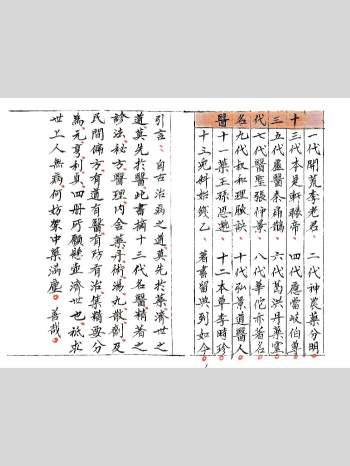 十三代名醫
一代開荒李老君。二代神農藥分明
三代本是軒轅帝 四代應當岐伯尊
五代盧醫秦扁鵲 六代葛洪丹藥靈
七代醫聖張仲景 八代華佗亦著名
九代叔和理脈訣 十代弘景道醫人
十一藥王孫思邈 十二本草李時珍
十三兒科始錢乙 著書留與到如今
引言：自古治病之道莫先於藥濟世之
道莫先於醫此書摘十三代名醫精著之
診法秘方醫理內含藥丹術湯丸散劑及
民間偏方有道有醫有防有治集精要分
為元亨利貞四冊所願懸壺濟世也祗求
世上人無病何妨架中藥滿塵。善哉。